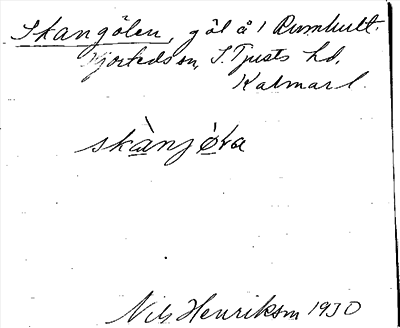 Skangölen, göl å 1 Rumhult.
Hjorteds sn, S. Tjusts hd,
Kalmar l.
skànjø̀la
Nils Henriksson 1930